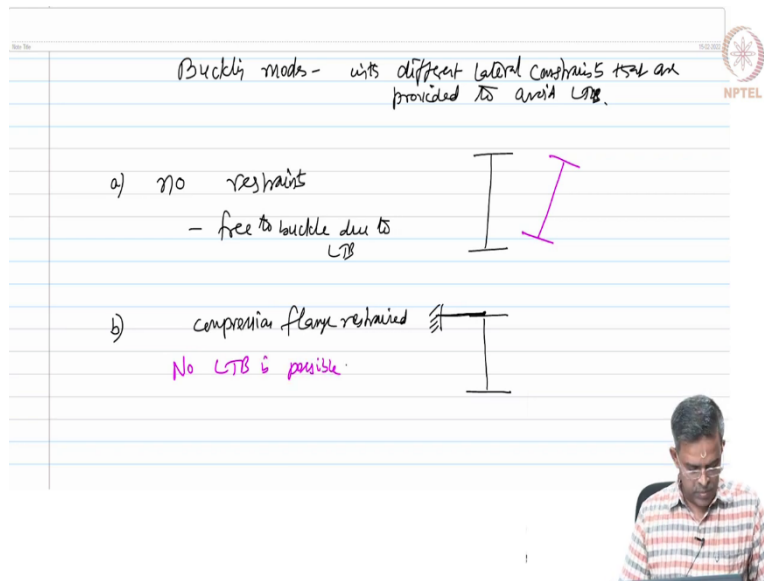 Note Title
15-02-2022
NPTEL
Buckling modes - with different lateral constraints that are
provided to avoid LTB.
a) no restraints
- free to buckle due to
LTB
b) compression flange restrained
No LTB is possible.